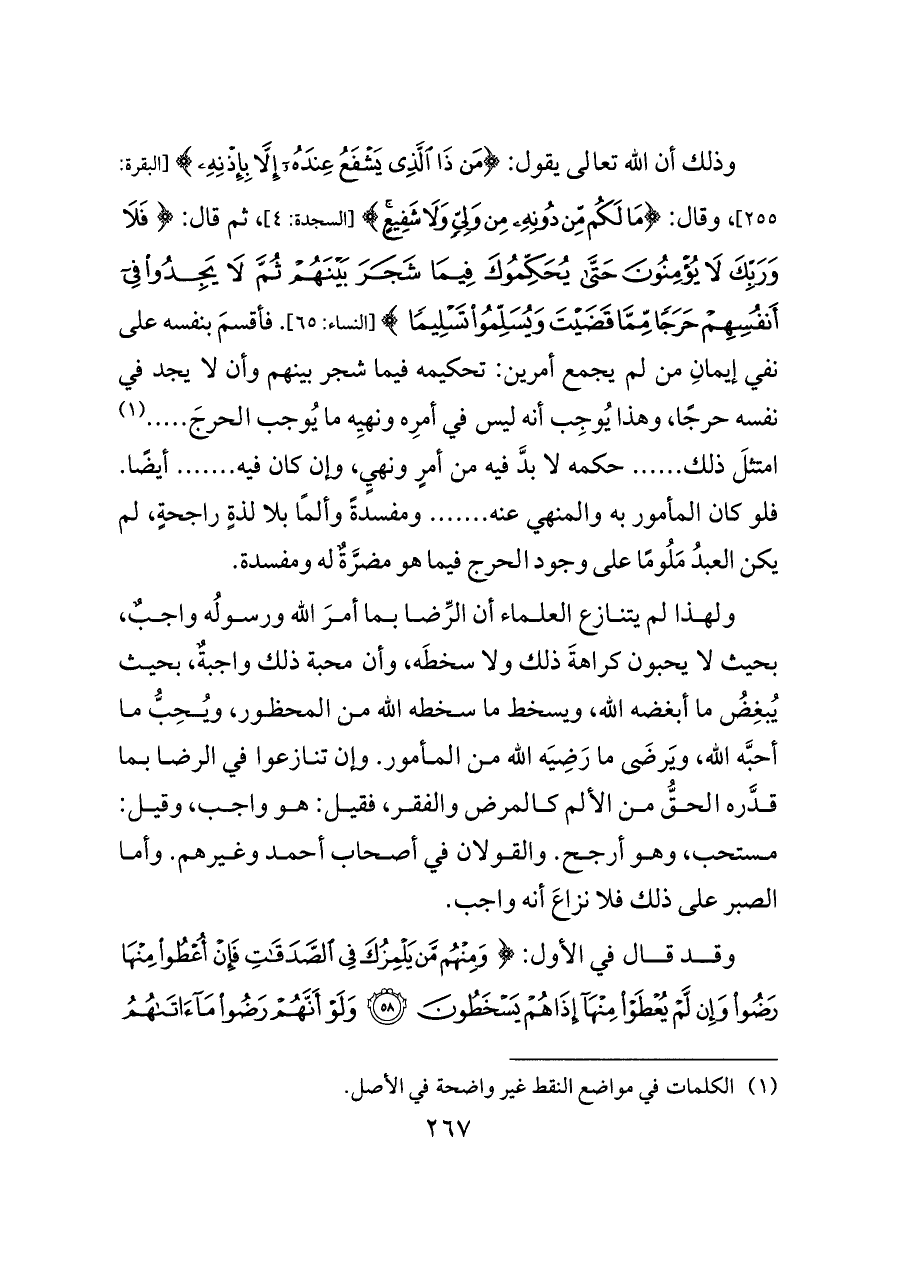 وذلك أن الله تعالى يقول: ﴿مَن ذَا ٱلَّذِى يَشْفَعُ عِندَهُۥٓ إِلَّا بِإِذْنِهِۦ﴾ [البقرة:
٢٥٥]، وقال: ﴿مَا لَكُم مِّن دُونِهِۦ مِن وَلِىٍّ وَلَا شَفِيعٍۚ﴾ [السجدة: ٤]، ثم قال: ﴿فَلَا
وَرَبِّكَ لَا يُؤْمِنُونَ حَتَّىٰ يُحَكِّمُوكَ فِيمَا شَجَرَ بَيْنَهُمْ ثُمَّ لَا يَجِدُوا۟ فِىٓ
أَنفُسِهِمْ حَرَجًا مِّمَّا قَضَيْتَ وَيُسَلِّمُوا۟ تَسْلِيمًا﴾ [النساء: ٦٥]. فأقسمَ بنفسه على
نفي إيمانِ من لم يجمع أمرين: تحكيمه فيما شجر بينهم وأن لا يجد في
نفسه حرجًا، وهذا يُوجِب أنه ليس في أمرِه ونهيِه ما يُوجب الحرجَ.....(١)
امتثلَ ذلك...... حكمه لا بدَّ فيه من أمرٍ ونهيٍ، وإن كان فيه....... أيضًا.
فلو كان المأمور به والمنهي عنه....... ومفسدةً وألمًا بلا لذةٍ راجحةٍ، لم
يكن العبدُ مَلُومًا على وجود الحرج فيما هو مضرَّةٌ له ومفسدة.
ولهذا لم يتنازع العلماء أن الرِّضا بما أمرَ الله ورسولُه واجبٌ،
بحيث لا يحبون كراهةَ ذلك ولا سخطَه، وأن محبة ذلك واجبةٌ، بحيث
يُبغِضُ ما أبغضه الله، ويسخط ما سخطه الله من المحظور، ويُحِبُّ ما
أحبَّه الله، ويَرضَى ما رَضِيَه الله من المأمور. وإن تنازعوا في الرضا بما
قدَّره الحقُّ من الألم كالمرض والفقر، فقيل: هو واجب، وقيل:
مستحب، وهو أرجح. والقولان في أصحاب أحمد وغيرهم. وأما
الصبر على ذلك فلا نزاعَ أنه واجب.
وقد قال في الأول: ﴿وَمِنْهُم مَّن يَلْمِزُكَ فِى ٱلصَّدَقَـٰتِ فَإِنْ أُعْطُوا۟ مِنْهَا
رَضُوا۟ وَإِن لَّمْ يُعْطَوْا۟ مِنْهَآ إِذَا هُمْ يَسْخَطُونَ ۝٥٨ وَلَوْ أَنَّهُمْ رَضُوا۟ مَآ ءَاتَىٰهُمُ
(١) الكلمات في مواضع النقط غير واضحة في الأصل.
٢٦٧